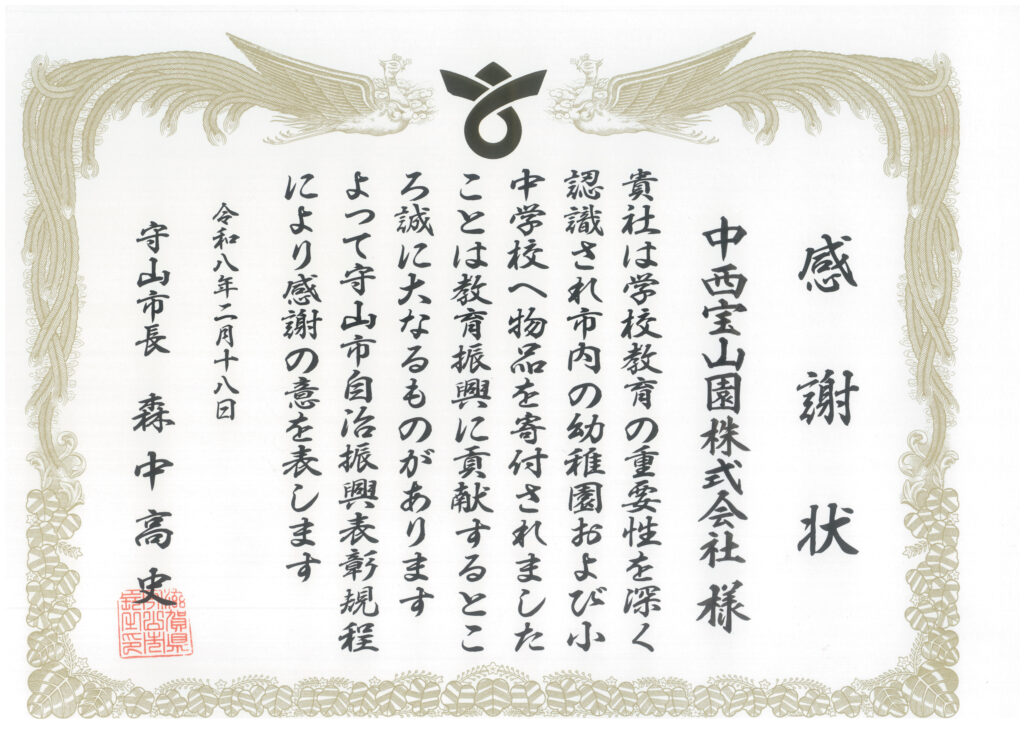 感謝状
中西宝山園株式会社 様
貴社は学校教育の重要性を深く
認識され市内の幼稚園および小
中学校へ物品を寄付されました
ことは教育振興に貢献するとこ
ろ誠に大なるものがあります
よって守山市自治振興表彰規程
により感謝の意を表します
令和八年二月十八日
守山市長 森中高史
滋賀県
守山市
長之印